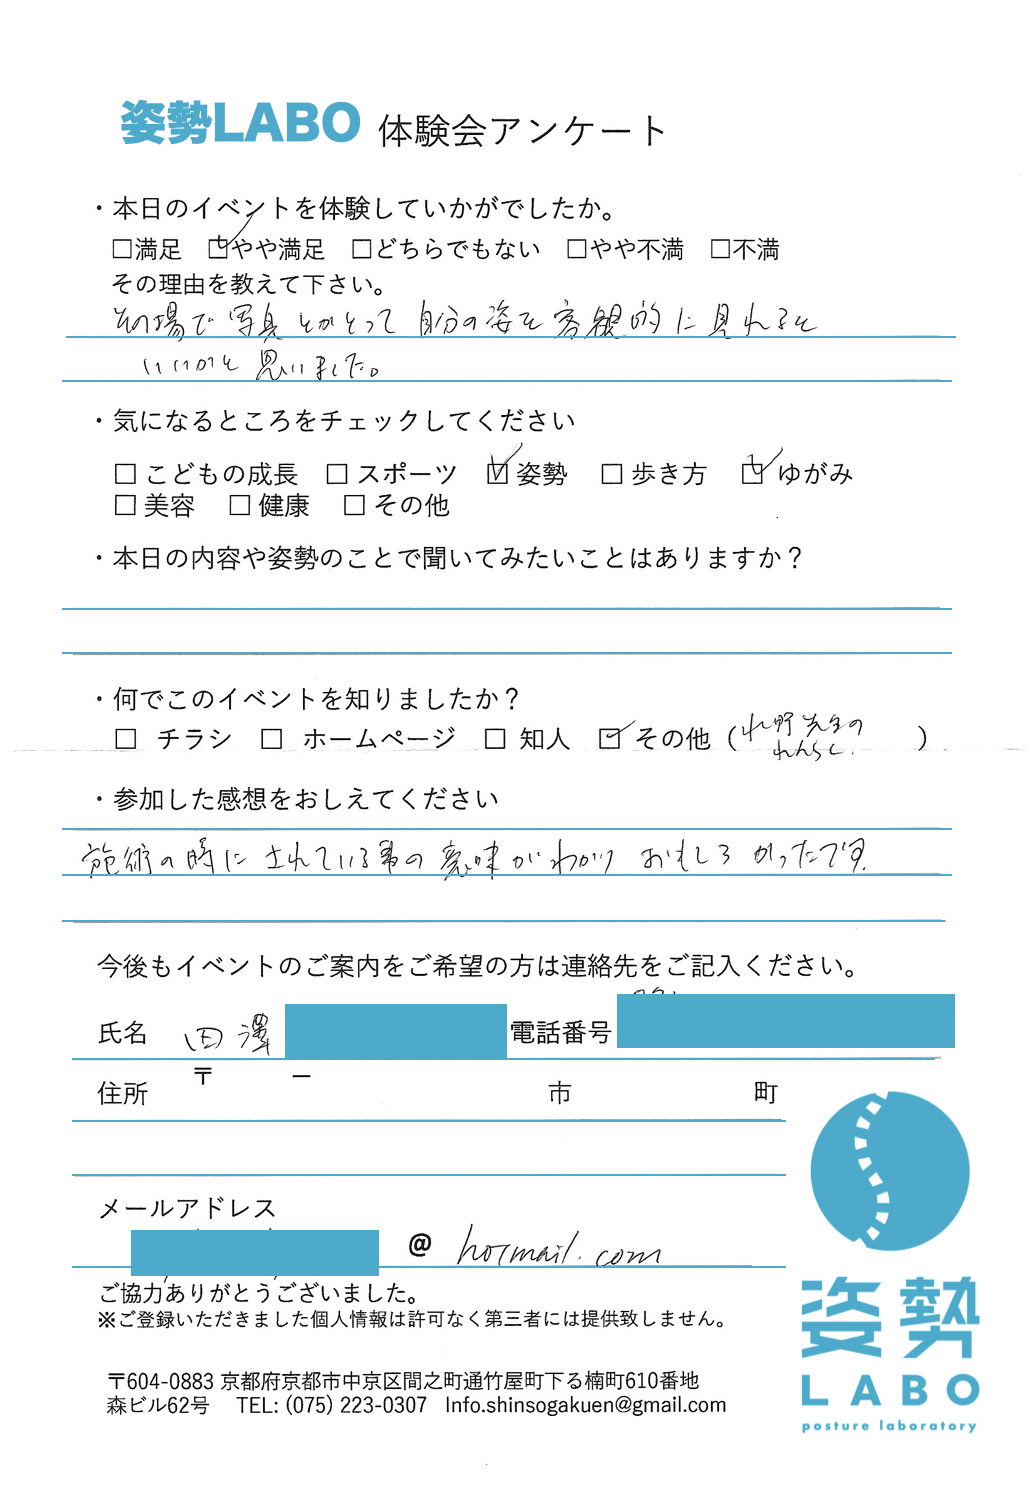 姿勢LABO 体験会アンケート
・本日のイベントを体験していかがでしたか。
□満足 ☑やや満足 □どちらでもない □やや不満 □不満
その理由を教えて下さい。
その場で写真とかとって自分の姿を客観的に見れると
いいかと思いました。
・気になるところをチェックしてください
□ こどもの成長 □ スポーツ ☑ 姿勢 □ 歩き方 ☑ ゆがみ
□ 美容 □ 健康 □ その他
・本日の内容や姿勢のことで聞いてみたいことはありますか？
・何でこのイベントを知りましたか？
□ チラシ □ ホームページ □ 知人 ☑ その他（野先生の
れんらく. ）
・参加した感想をおしえてください
施術の時にされている事の意味がわかり おもしろかったです.
今後もイベントのご案内をご希望の方は連絡先をご記入ください。
氏名 田澤 電話番号
住所 〒 ー 市 町
メールアドレス
@ hotmail.com
ご協力ありがとうございました。
※ご登録いただきました個人情報は許可なく第三者には提供致しません。
〒604-0883 京都府京都市中京区間之町通竹屋町下る楠町610番地
森ビル62号 TEL: (075) 223-0307 Info.shinsogakuen@gmail.com
姿勢
LABO
posture laboratory